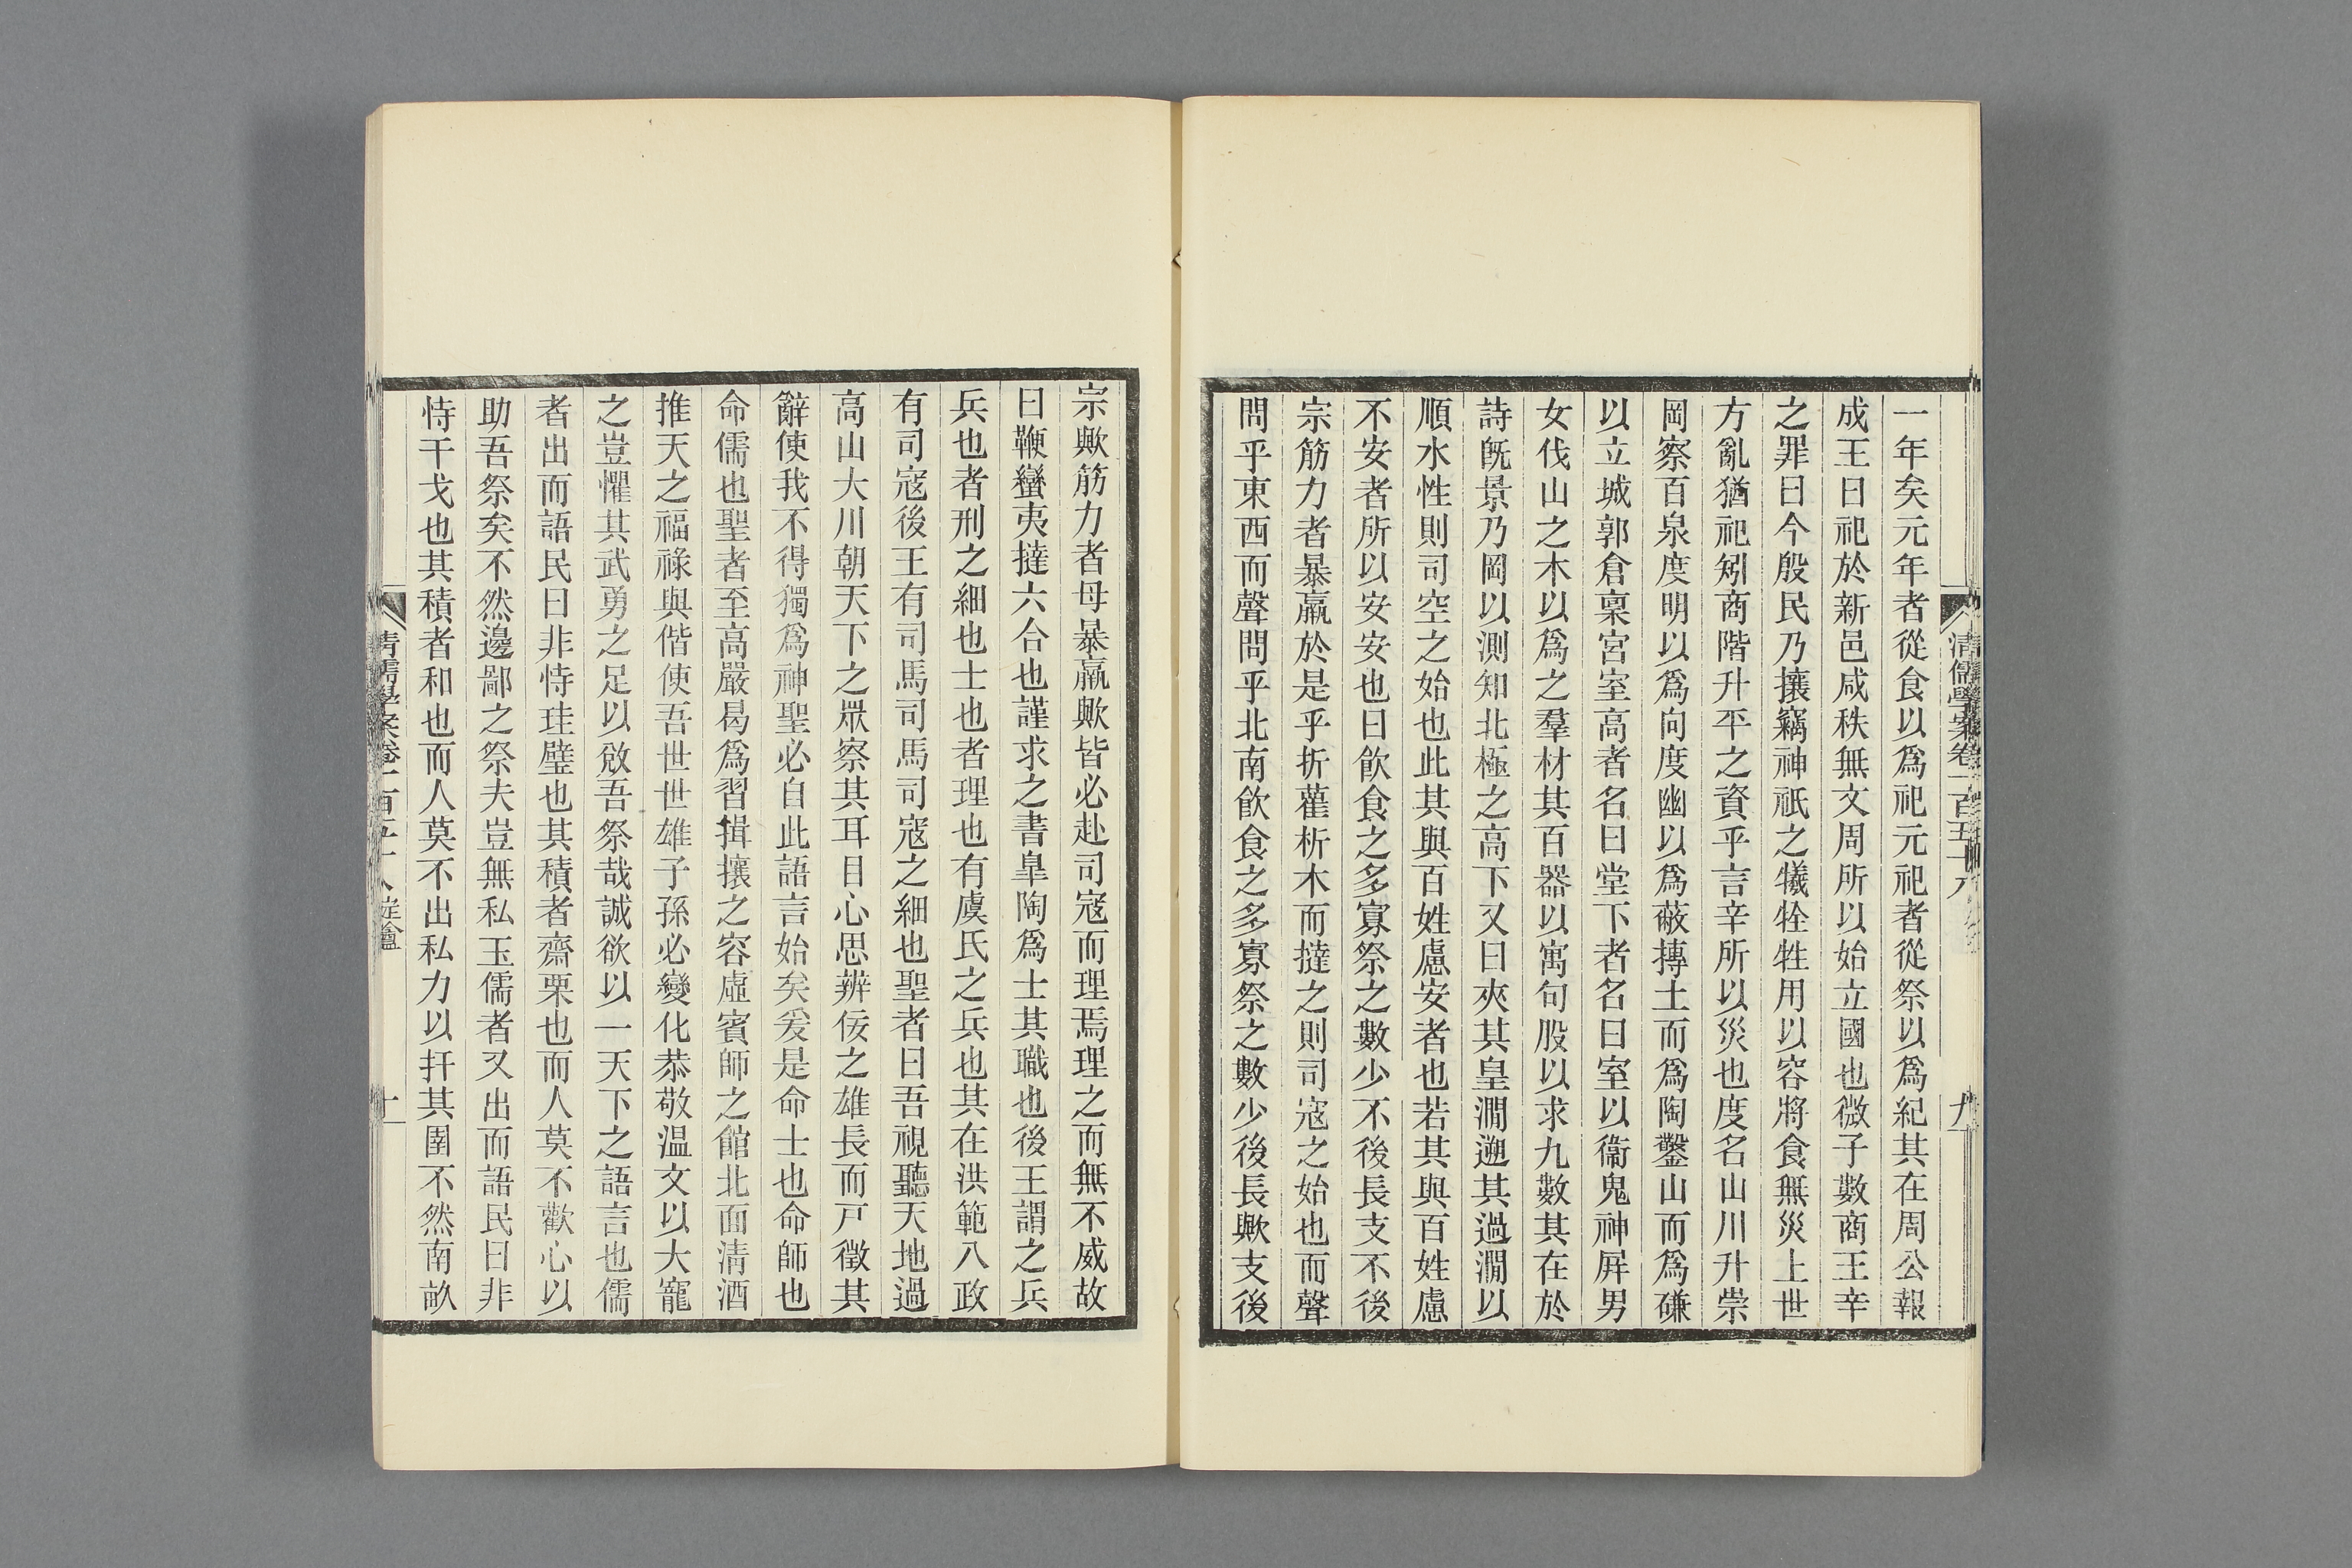 一年矣元年者從食以爲祀元祀者從祭以爲紀其在周公報
成王曰祀於新邑咸秩無文周所以始立國也微子數商王辛
之罪曰今殷民乃攘竊神祇之犧牷牲用以容將食無災上世
方亂猶祀矧商階升平之資乎言辛所以災也度名山川升崇
岡察百泉度明以爲向度幽以爲蔽摶土而爲陶鑿山而爲磏
以立城郭倉稟宮室高者名曰堂下者名曰室以衞鬼神屛男
女伐山之木以爲之羣材其百器以寓句股以求九數其在於
詩旣景乃岡以測知北極之高下又曰夾其皇澗遡其過澗以
順水性則司空之始也此其與百姓慮安者也若其與百姓慮
不安者所以安安也曰飮食之多寡祭之數少不後長支不後
宗筋力者暴羸於是乎折雚析木而撻之則司寇之始也而聲
問乎東西而聲問乎北南飮食之多寡祭之數少後長歟支後
清儒學案卷一百五十八
九
宗歟筋力者母暴羸歟皆必赴司寇而理焉理之而無不威故
曰鞭蠻夷撻六合也謹求之書皐陶爲士其職也後王謂之兵
兵也者刑之細也士也者理也有虞氏之兵也其在洪範八政
有司寇後王有司馬司馬司寇之細也聖者曰吾視聽天地過
高山大川朝天下之眾察其耳目心思辨佞之雄長而戸徵其
辭使我不得獨爲神聖必自此語言始矣爰是命士也命師也
命儒也聖者至高嚴曷爲習揖攘之容虛賓師之館北面淸酒
推天之福祿與偕使吾世世雄子孫必變化恭敬温文以大寵
之豈懼其武勇之足以敓吾祭哉誠欲以一天下之語言也儒
者出而語民曰非恃珪璧也其積者齋栗也而人莫不歡心以
助吾祭矣不然邊鄙之祭夫豈無私玉儒者又出而語民曰非
恃干戈也其積者和也而人莫不出私力以扞其圉不然南畝
清儒學案卷一百五十八 定盦
十